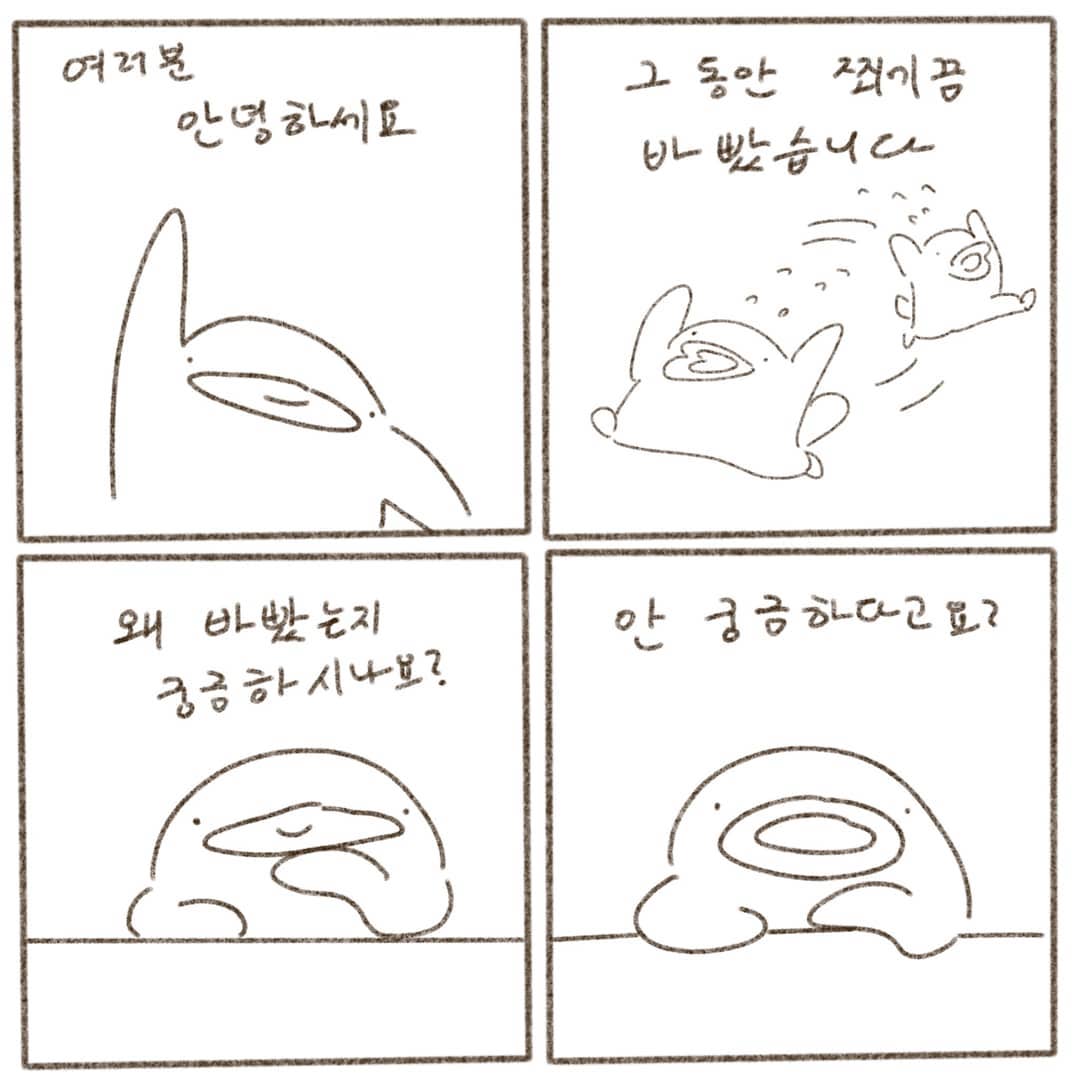 여러분
안녕하세요
그동안 쬐끔
바빴습니다
왜 바빴는지
궁금하시나요?
안 궁금하다고요?